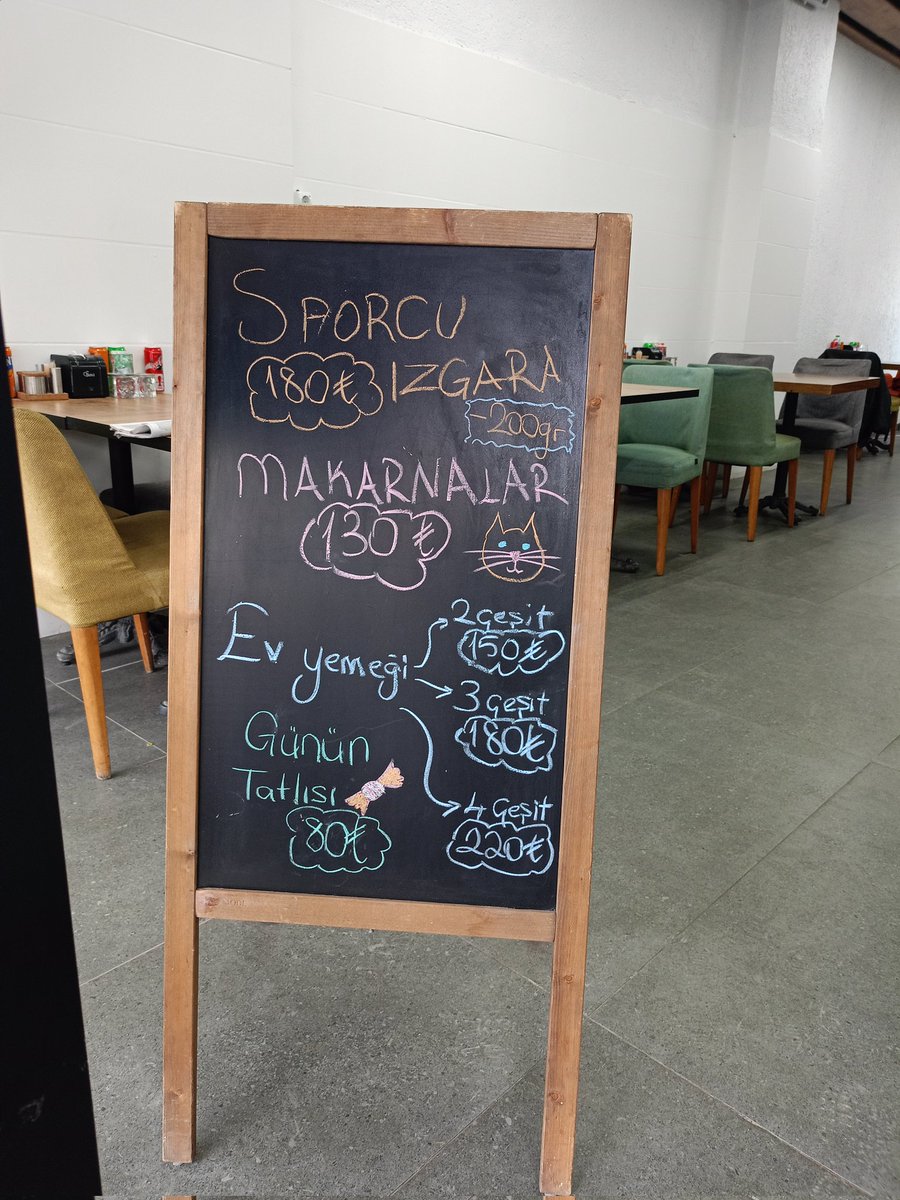 SPORCU
180₺ IZGARA
-200gr
MAKARNALAR
130₺
Ev yemeği
2 çeşit
150₺
3 çeşit
180₺
4 çeşit
220₺
Günün
Tatlısı
80₺